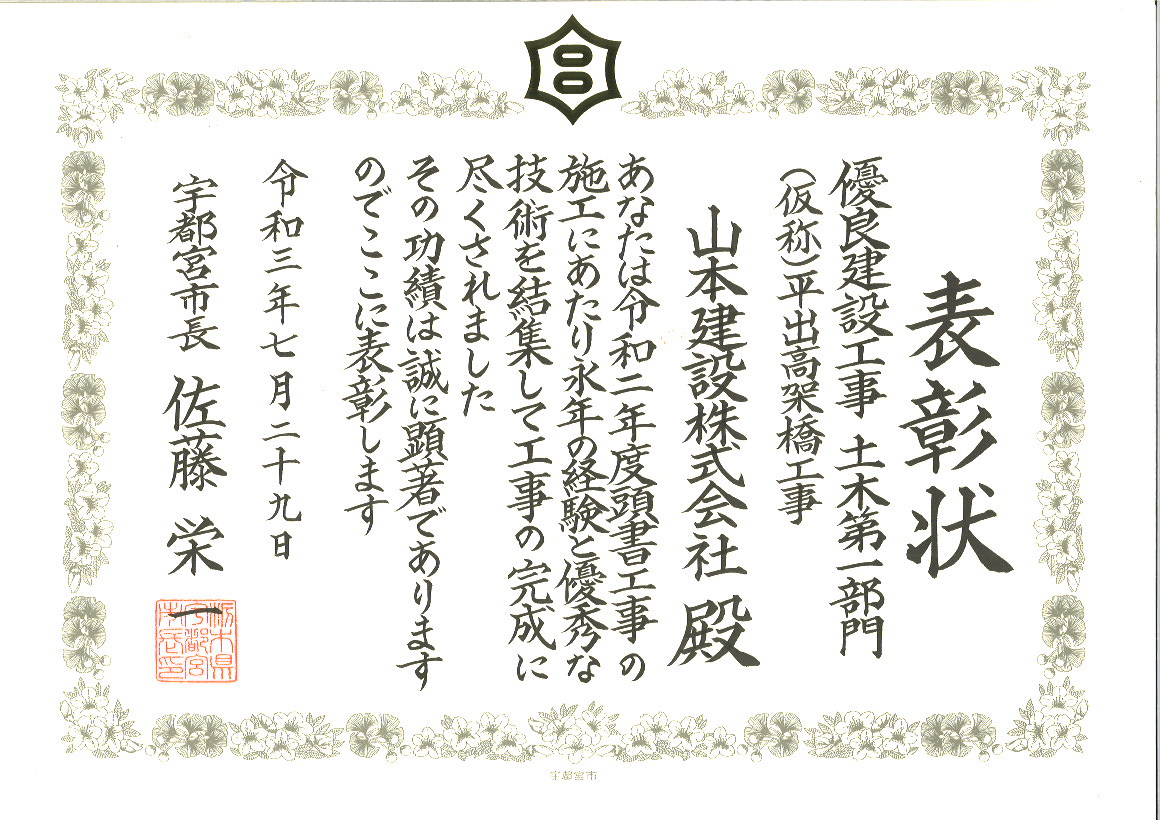 表彰状
優良建設工事 土木第一部門
(仮称)平出高架橋工事
山本建設株式会社 殿
あなたは令和二年度頭書工事の
施工にあたり永年の経験と優秀な
技術を結集して工事の完成に
尽くされました
その功績は誠に顕著であります
のでここに表彰します
令和三年七月二十九日
宇都宮市長 佐藤 栄一
栃木県
宇都宮
市長印
宇都宮市